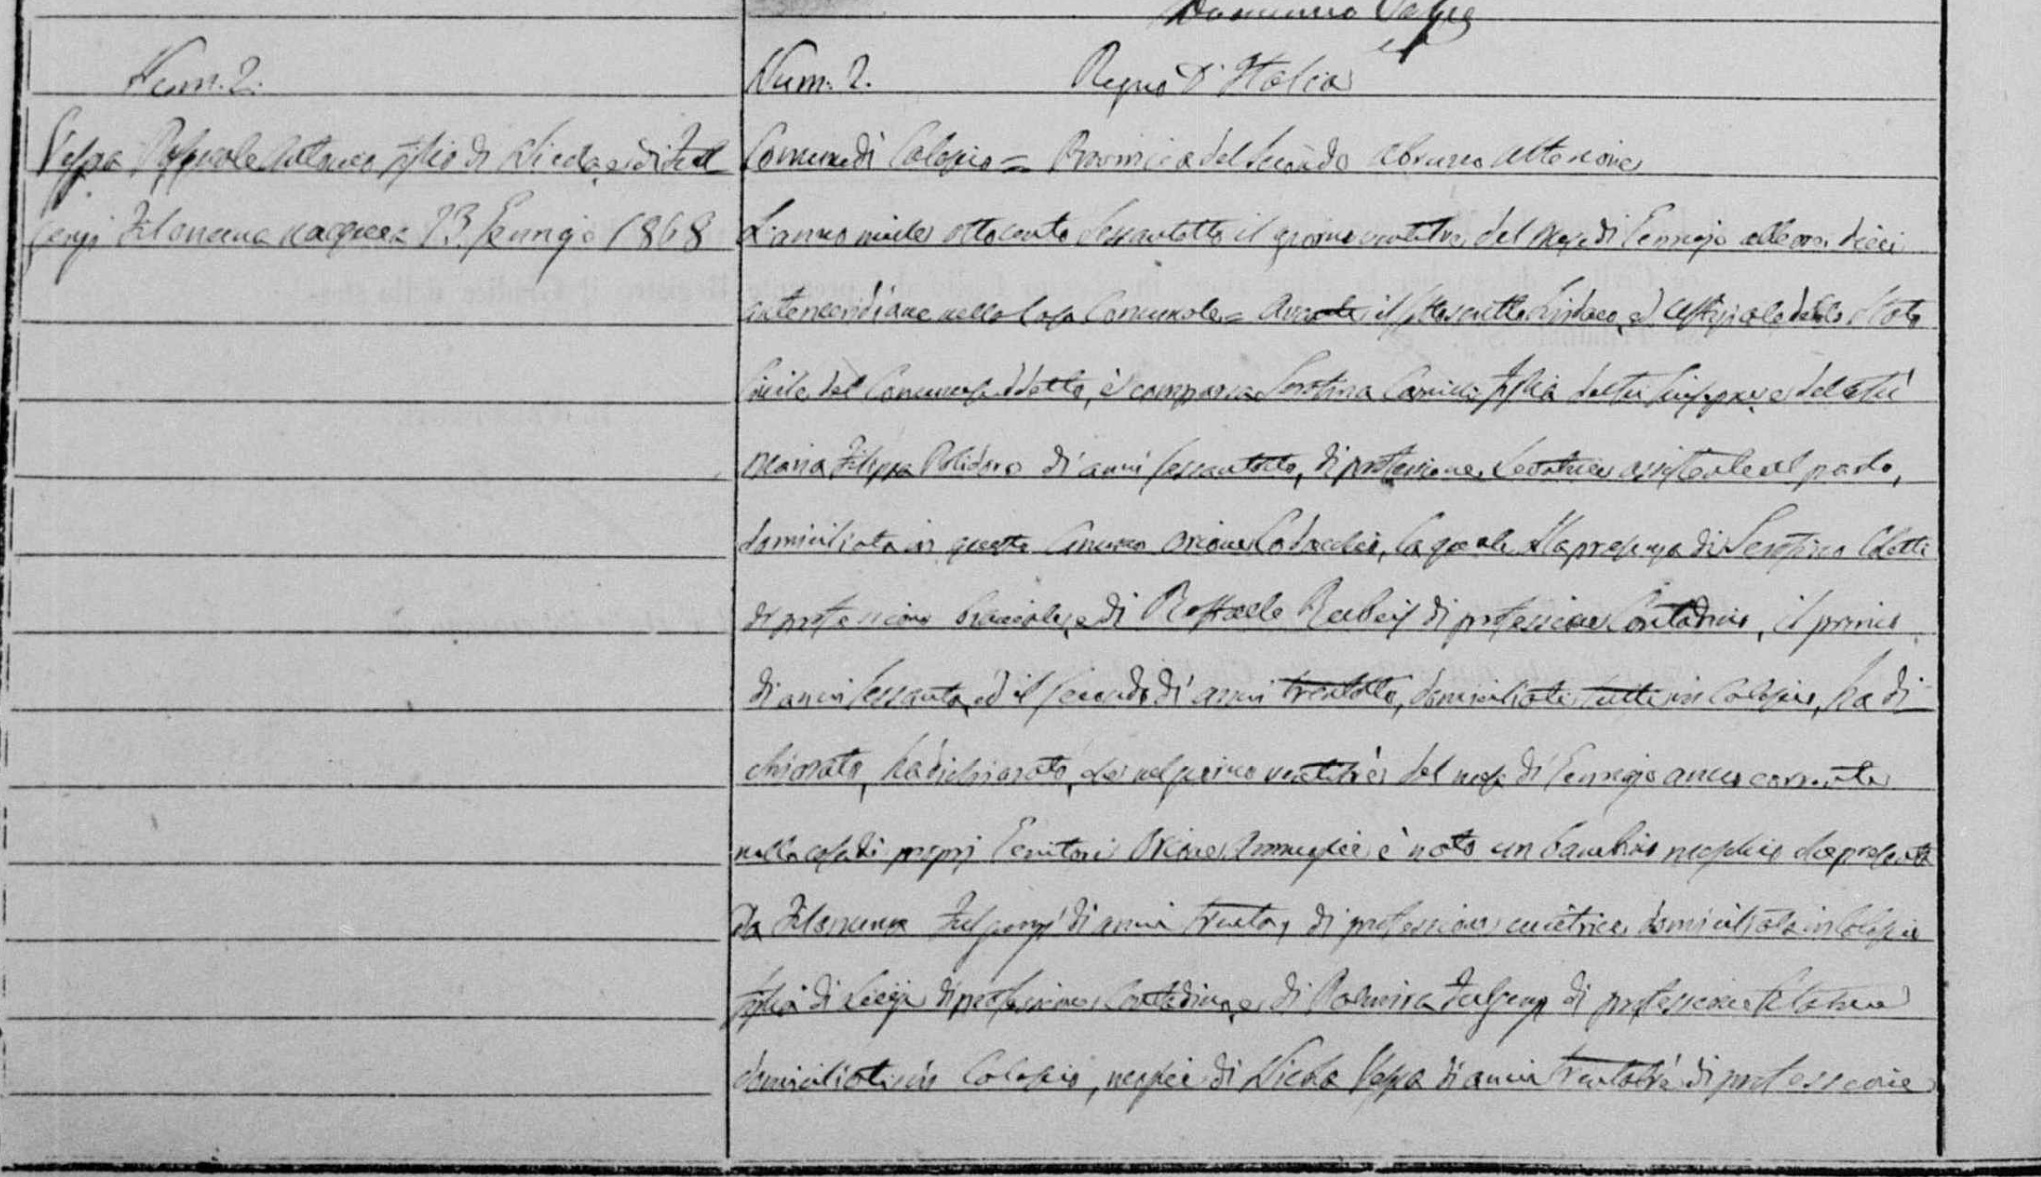 Num. 2.
Vespa Pasquale Antonio figlio di Nicola e di Ful
genzj Filomena nacque a 23. Gennajo 1868
Num. 2. Regno D'Italia
Comune di Caloscio = Provincia del Secondo Abruzzo Ulteriore
L'anno mille ottocento sessantotto il giorno ventitre del mese di Gennajo alle ore dieci
antemeridiane nella Casa Comunale = Avante il sottoscritto Sindaco, ed Uffiziale dello Stato
Civile del Comune suddetto, è comparsa Camilli figlia del fu Giuseppe e della fu
Maria Filippa Polidoro di anni sessantotto, di professione Levatrice assistente al parto,
domiciliata in questo Comune Rione, la quale alla presenza di Serafino Coletti
di professione bracciale, e di Raffaele Rubeis di professione Contadino, il primo
di anni sessanta, ed il secondo di anni trentotto, domiciliati tutti in, ha di
chiarato, ha dichiarato, che nel giorno ventitrè del mese di Gennajo anno corrente
nella casa di proprj Genitori Rione è nato un bambino maschio che presenta
da Filomena Fulgenzj di anni trenta, di professione cucitrice domiciliata in
figlia di di professione Contadino, e di Palmira Fulgenzj di professione filatrice
domiciliati in, moglie di Nicola Vespa di anni trentatrè di professione